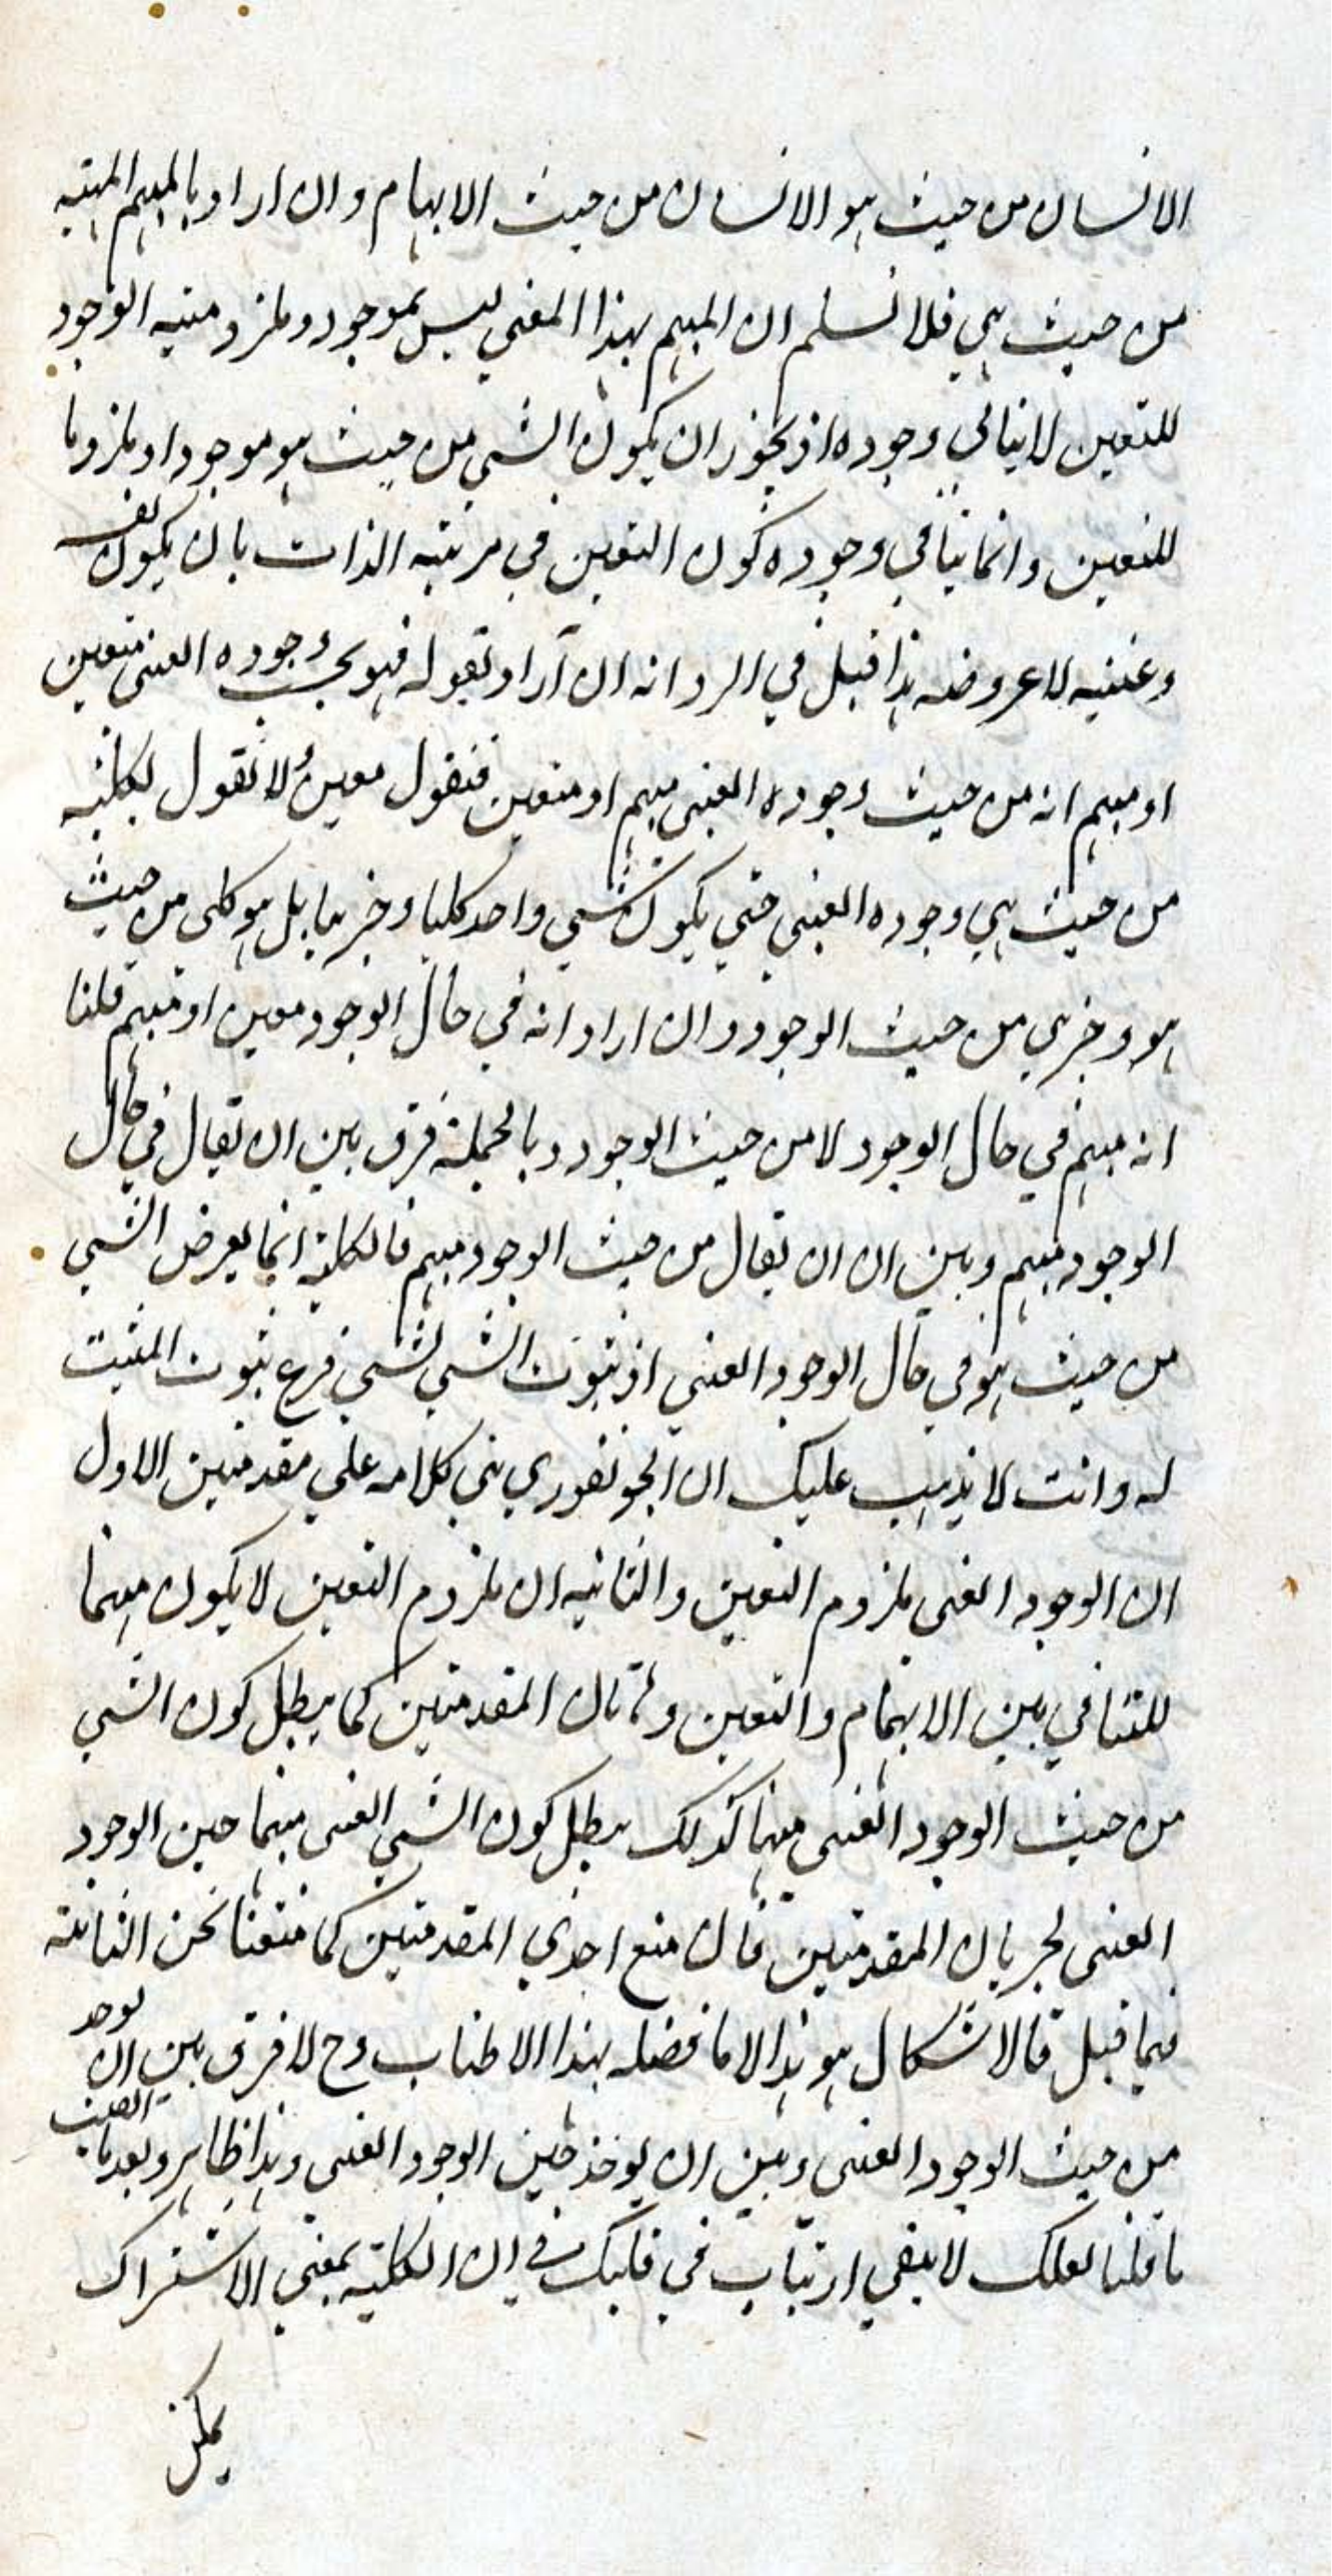 الانسان من حيث هو الانسان من حيث الابهام وان اراد بالمبهم المهية
من حيث هي فلا نسلم ان المبهم بهذا المعني ليس بموجود وملزومية الوجود
للتعين لا ينافي وجوده اذ يجوز ان يكون الشي من حيث هو موجودا وملزوما
للتعين وانما ينافي وجوده كون التعين في مرتبه الذات بان يكون نفسه
وعينيه لا عروضه هذا قيل في الرد انه ان اراد بقوله فهو بحسب وجوده العيني متعين
او مبهم انه من حيث وجوده العيني مبهم او متعين فنقول معين ولا نقول بكليته
من حيث هي وجوده العيني حتي يكون شي واحد كليا وجزئيا بل هو كلي من حيث
هو وجزي من حيث الوجود وان اراد انه في حال الوجود معين او مبهم قلنا
انه مبهم في حال الوجود لا من حيث الوجود وبالجملة فرق بين ان يقال في حال
الوجود مبهم وبين ان ان يقال من حيث الوجود مبهم فالكلية انما يعرض الشي
من حيث هو في حال الوجود العيني اذ ثبوت الشي لشي فرع ثبوت المثبت
له وانت لا يذهب عليك ان الجونفوري بني كلامه علي مقدمتين الاول
ان الوجود العيني ملزوم التعين والثانيه ان ملزوم التعين لا يكون مبهما
للتنافي بين الابهام والتعين وهاتان المقدمتين كما يبطل كون الشي
من حيث الوجود العيني مبهما كذلك يبطل كون الشي العيني مبهما حين الوجود
العيني لجريان المقدمتين فان منع احدي المقدمتين كما منعنا نحن الثانية
فيما قبل فالاشكال هو هذا لا ما فصله بهذا الاطناب وح لا فرق بين ان يوخذ
من حيث الوجود العيني وبين ان يوخذ حين الوجود العيني وهذا ظاهر وبعد ما القيت
ما قلنا لعلك لا يبقي ارتياب في قلبك في ان الكلية بمعني الاشتراك
يمكن